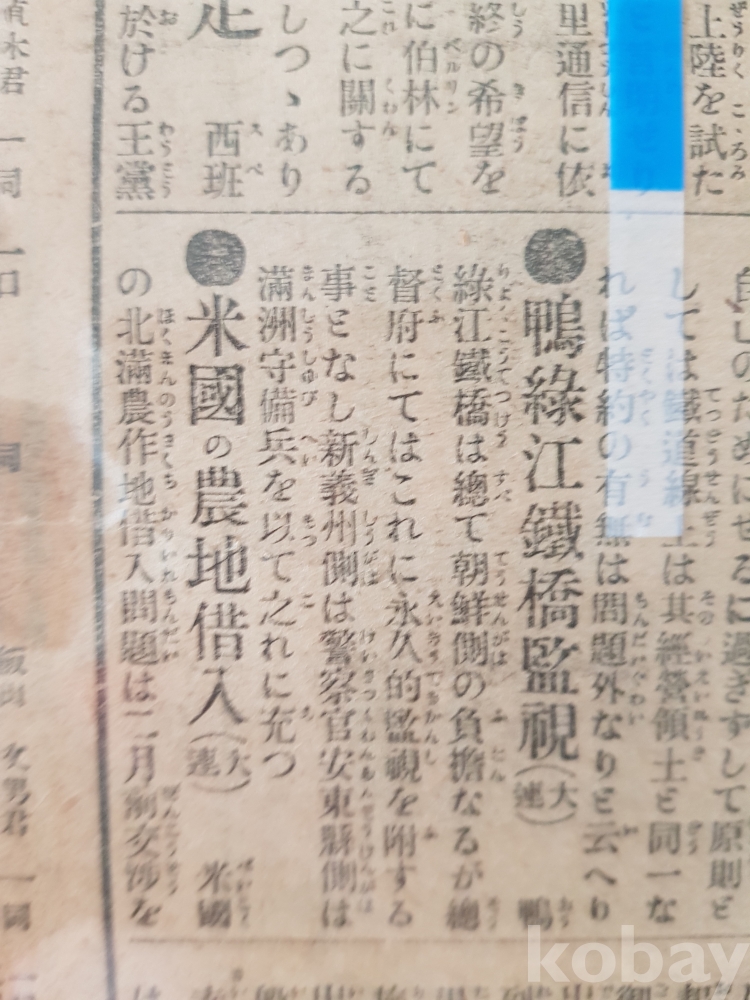 上陸を試た
里通信に依
終の希望を
に伯林にて
之に關する
しつゝあり
西班
於ける王黨
のためにせるに過ぎずして原則と
しては鐵道線上は其經營領土と同一な
れば特約の有無は問題外なりと云へり
●鴨綠江鐵橋監視(大連) 鴨
綠江鐵橋は總て朝鮮側の負擔なるが總
督府にてはこれに永久的監視を附する
事となし新義州側は警察官安東縣側は
滿洲守備兵を以て之れに充つ
●米國の農地借入(大連) 米國
の北滿農作地借入問題は二月前交渉を
kobay